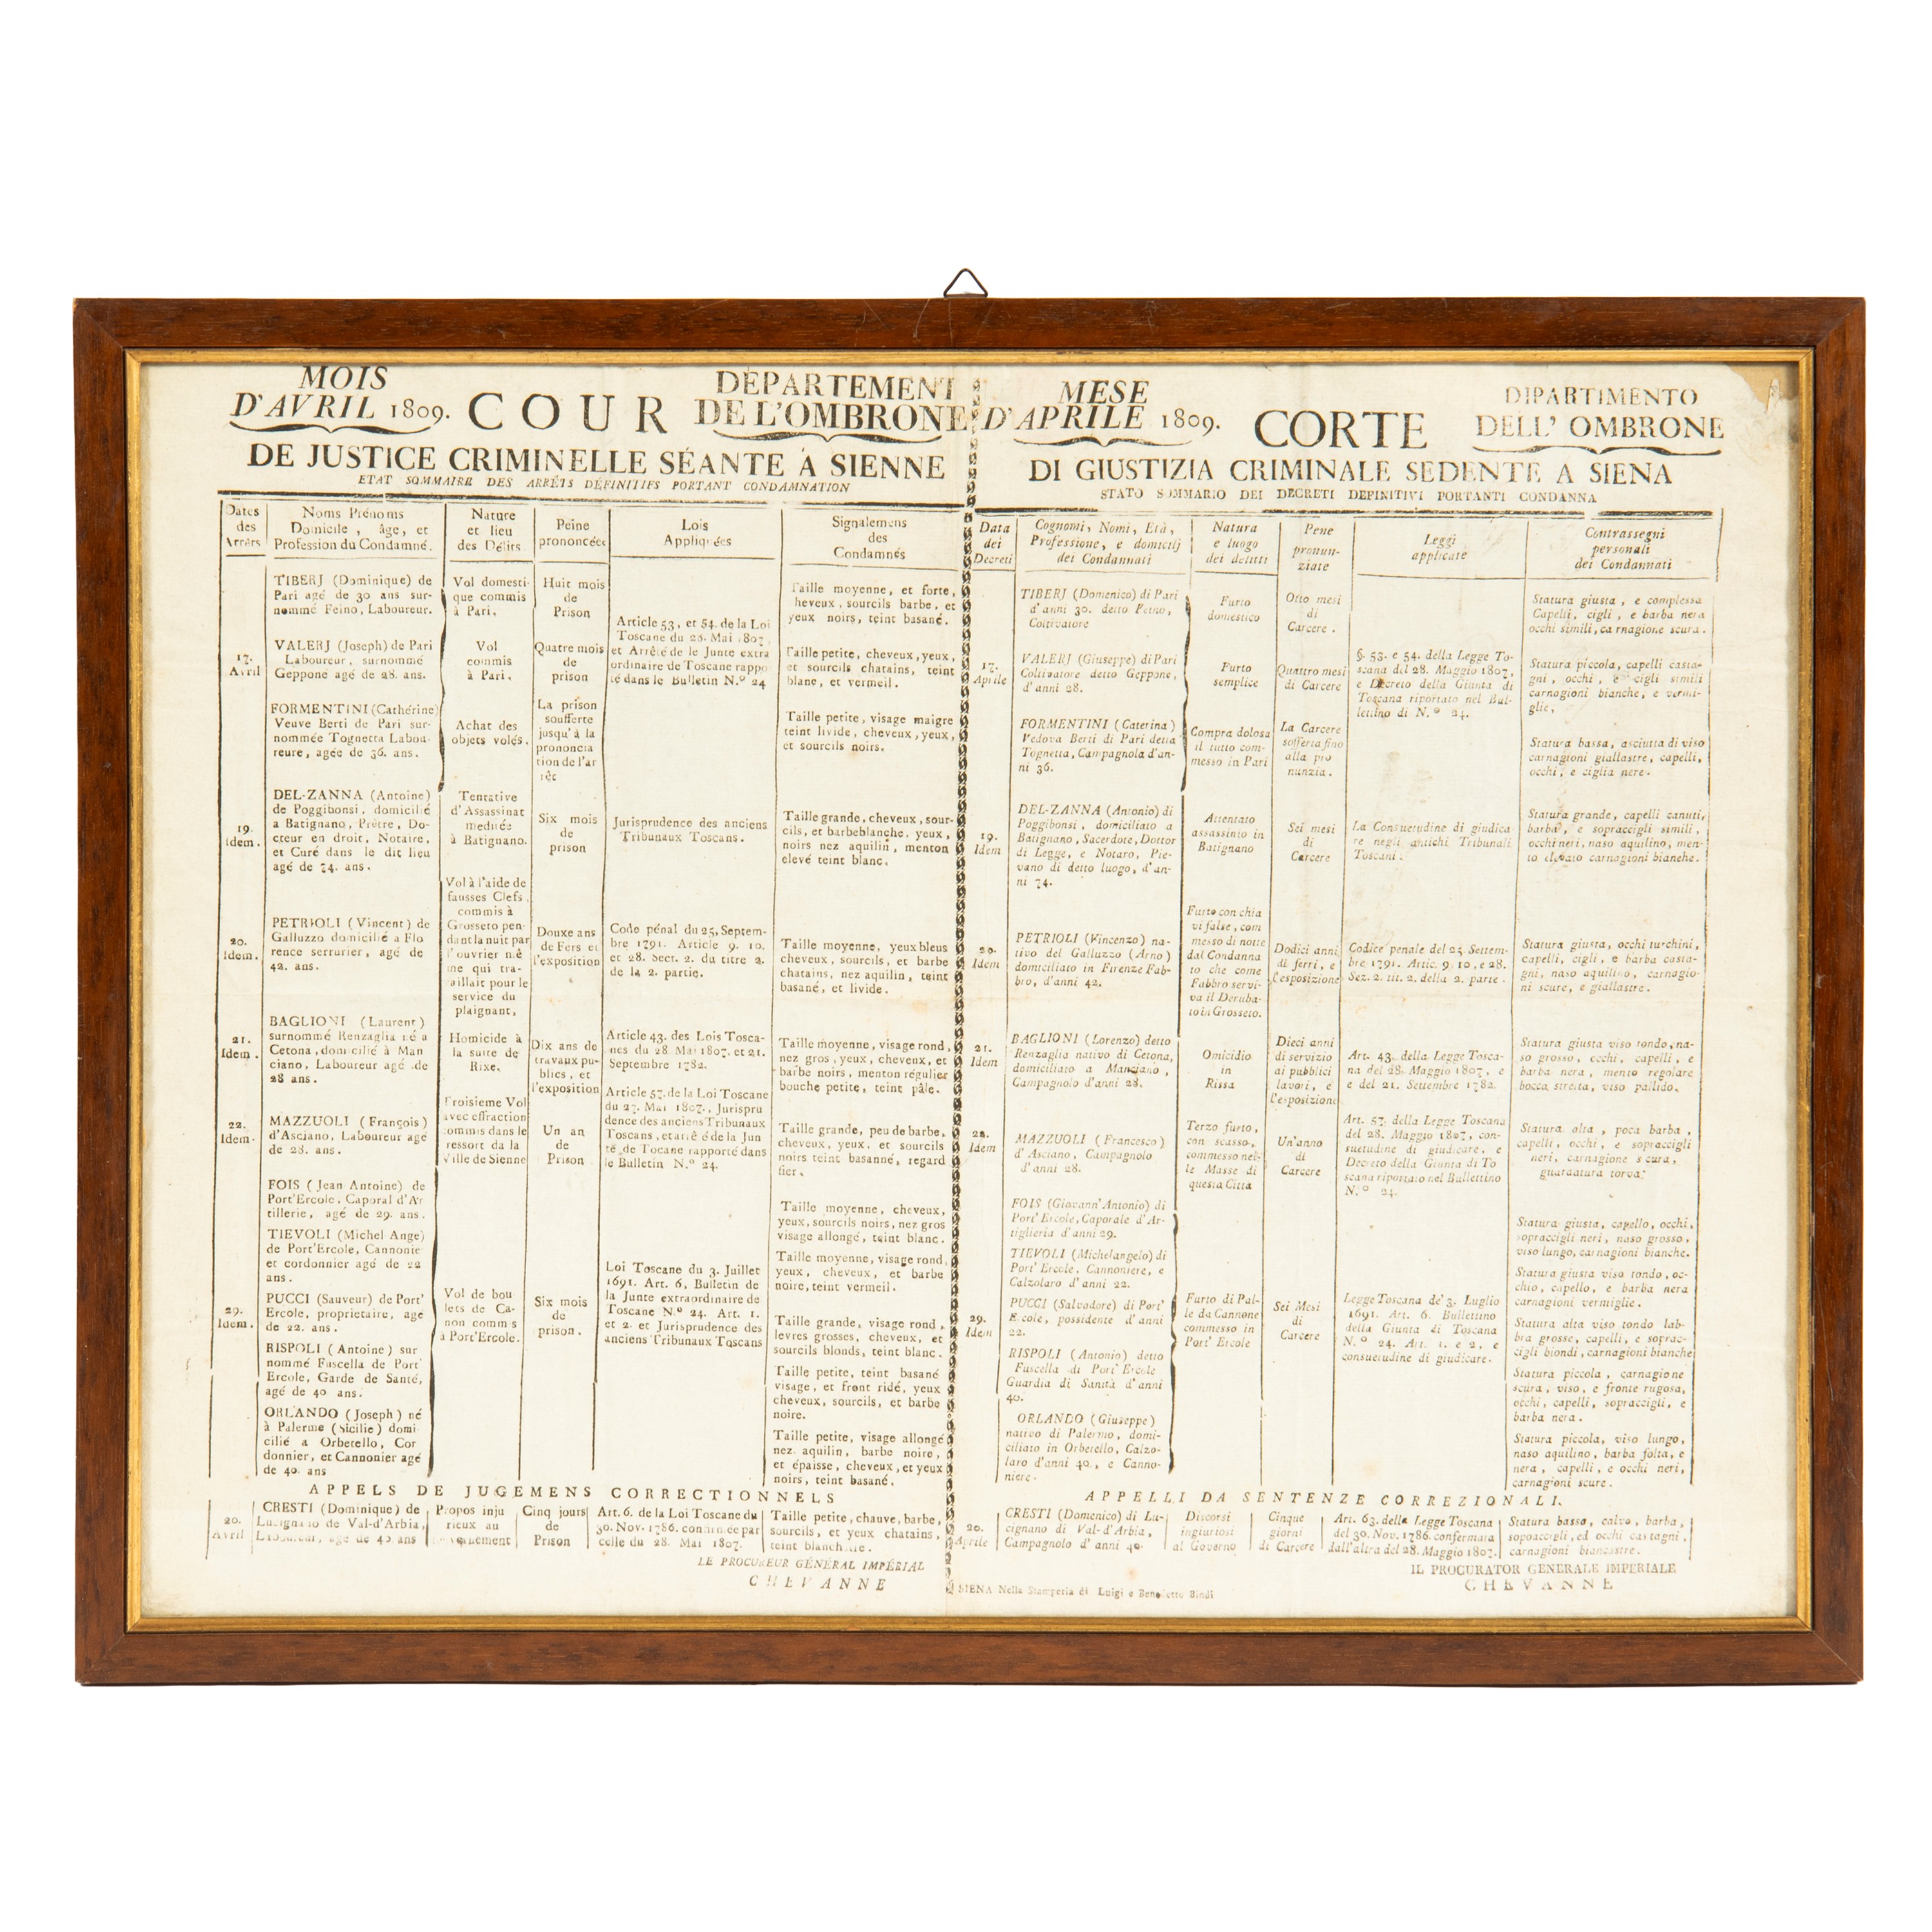 MOIS
D'AVRIL 1809.
COUR
DÉPARTEMENT
DE L'OMBRONE
DE JUSTICE CRIMINELLE SÉANTE À SIENNE
ETAT SOMMAIRE DES ARRÊTS DÉFINITIFS PORTANT CONDAMNATION
Dates
des
Arrêts
Noms Prénoms
Domicile, âge, et
Profession du Condamné.
Nature
et lieu
des Délits
Peine
prononcée
Lois
Appliquées
Signalemens
des
Condamnés
17.
Avril
TIBERJ (Dominique) de
Pari agé de 30 ans sur-
nommé Feino, Laboureur.
Vol domesti-
que commis
à Pari.
Huit mois
de
Prison
Taille moyenne, et forte,
heveux, sourcils barbe, et
yeux noirs, teint basané.
VALERJ (Joseph) de Pari
Laboureur, surnommé
Geppone agé de 28. ans.
Vol
commis
à Pari.
Quatre mois
de
prison
Article 53, et 54. de la Loi
Toscane du 28. Mai 1807,
et Arrêté de le Junte extra
ordinaire de Toscane rappo
té dans le Bulletin N.º 24
Taille petite, cheveux, yeux,
et sourcils chatains, teint
blanc, et vermeil.
FORMENTINI (Cathérine)
Veuve Berti de Pari sur-
nommée Tognetta Labou-
reure, agée de 36. ans.
Achat des
objets volés.
La prison
soufferte
jusqu'à la
prononcia
tion de l'ar
rêt
Taille petite, visage maigre
teint livide, cheveux, yeux,
et sourcils noirs.
19.
Idem.
DEL-ZANNA (Antoine)
de Poggibonsi, domicilié
a Batignano, Prêtre, Do-
cteur en droit, Notaire,
et Curé dans le dit lieu
agé de 74. ans.
Tentative
d'Assassinat
meditée
à Batignano.
Six mois
de
prison
Jurisprudence des anciens
Tribunaux Toscans.
Taille grande, cheveux, sour-
cils, et barbe blanche, yeux,
noirs nez aquilin, menton
elevé teint blanc.
20.
Idem.
PETRIOLI (Vincent) de
Galluzzo domicilié a Flo
rence serrurier, agé de
42. ans.
Vol à l'aide de
fausses Clefs,
commis à
Grosseto pen-
dant la nuit par
l'ouvrier mê
me qui tra-
vaillait pour le
service du
plaignant,
Douze ans
de Fers et
l'exposition
Code pénal du 25, Septem-
bre 1791. Article 9. 10.
et 28. Sect. 2. du titre 2.
de la 2. partie.
Taille moyenne, yeux bleus
cheveux, sourcils, et barbe
chatains, nez aquilin, teint
basané, et livide.
21.
Idem.
BAGLIONI (Laurent)
surnommé Renzaglia né a
Cetona, domicilié à Man
ciano, Laboureur agé de
28 ans.
Homicide à
la suite de
Rixe.
Dix ans de
travaux pu-
blics, et
l'exposition
Article 43. des Lois Tosca-
nes du 28 Mai 1807. et 21.
Septembre 1782.
Taille moyenne, visage rond,
nez gros, yeux, cheveux, et
barbe noirs, menton régulier
bouche petite, teint pâle.
22.
Idem.
MAZZUOLI (François)
d'Asciano, Laboureur agé
de 28. ans.
Troisieme Vol
avec effraction
commis dans le
ressort da la
Ville de Sienne
Un an
de
Prison
Article 57. de la Loi Toscane
du 27. Mai 1807., Jurispru
dence des anciens Tribunaux
Toscans, et arrêté de la Jun
te de Tocane rapporté dans
le Bulletin N.º 24.
Taille grande, peu de barbe,
cheveux, yeux. et sourcils
noirs teint basanné, regard
fier.
29.
Idem.
FOIS (Jean Antoine) de
Port'Ercole, Caporal d'Ar
tillerie, agé de 29. ans.
TIEVOLI (Michel Ange)
de Port'Ercole, Cannonie
et cordonnier agé de 22
ans.
PUCCI (Sauveur) de Port'
Ercole, proprietaire, agé
de 22. ans.
RISPOLI (Antoine) sur
nommé Fuscella de Port'
Ercole, Garde de Santé,
agé de 40 ans.
ORLANDO (Joseph) né
à Palerme (Sicilie) domi
cilié a Orbetello, Cor
donnier, et Cannonier agé
de 40. ans
Vol de bou
lets de Ca-
non commis
à Port'Ercole.
Six mois
de
prison.
Loi Toscane du 3. Juillet
1691. Art. 6. Bulletin de
la Junte extraordinaire de
Toscane N.º 24. Art. 1.
et 2. et Jurisprudence des
anciens Tribunaux Toscans
Taille moyenne, cheveux,
yeux, sourcils noirs, nez gros
visage allongé, teint blanc.
Taille moyenne, visage rond,
yeux, cheveux, et barbe
noire, teint vermeil.
Taille grande, visage rond,
levres grosses, cheveux, et
sourcils blonds, teint blanc.
Taille petite, teint basané
visage, et front ridé, yeux
cheveux, sourcils, et barbe
noire.
Taille petite, visage allongé
nez aquilin, barbe noire,
et épaisse, cheveux, et yeux
noirs, teint basané.
APPELS DE JUGEMENS CORRECTIONNELS
20.
Avril
CRESTI (Dominique) de
Lucignano de Val-d'Arbia,
Laboureur, agé de 40 ans
Propos inju
rieux au
Cinq jours
de
Prison
Art. 6. de la Loi Toscane du
30. Nov. 1786. confirmée par
celle du 28. Mai 1807.
Taille petite, chauve, barbe,
sourcils, et yeux chatains,
teint blanchâtre.
LE PROCUREUR GÉNÉRAL IMPÉRIAL
CHEVANNE
MESE
D'APRILE 1809.
CORTE
DIPARTIMENTO
DELL' OMBRONE
DI GIUSTIZIA CRIMINALE SEDENTE A SIENA
STATO SOMMARIO DEI DECRETI DEFINITIVI PORTANTI CONDANNA
Data
dei
Decreti
Cognomi, Nomi, Età,
Professione, e domicilj
dei Condannati
Natura
e luogo
dei delitti
Pene
pronun-
ziate
Leggi
applicate
Contrassegni
personali
dei Condannati
17.
Aprile
TIBERJ (Domenico) di Pari
d'anni 30. detto Feino,
Coltivatore
Furto
domestico
Otto mesi
di
Carcere.
Statura giusta, e complessa
Capelli, cigli, e barba nera
occhi simili, carnagione scura.
VALERJ (Giuseppe) di Pari
Coltivatore detto Geppone,
d'anni 28.
Furto
semplice
Quattro mesi
di Carcere
§. 53. e 54. della Legge To-
scana del 28. Maggio 1807,
e Decreto della Giunta di
Toscana riportato nel Bul-
lettino di N.º 24.
Statura piccola, capelli casta-
gni, occhi, e cigli simili
carnagioni bianche, e vermi-
glie,
FORMENTINI (Caterina)
Vedova Berti di Pari detta
Tognetta, Campagnola d'an-
ni 36.
Compra dolosa
il tutto com-
messo in Pari
La Carcere
sofferta fino
alla pro
nunzia.
Statura bassa, asciutta di viso
carnagioni giallastre, capelli,
occhi, e ciglia nere.
19.
Idem
DEL-ZANNA (Antonio) di
Poggibonsi, domiciliato a
Batignano, Sacerdote, Dottor
di Legge, e Notaro, Pie-
vano di detto luogo, d'an-
ni 74.
Attentato
assassinio in
Batignano
Sei mesi
di
Carcere
La Consuetudine di giudica
re negli antichi Tribunali
Toscani.
Statura grande, capelli canuti,
barba, e sopraccigli simili,
occhi neri, naso aquilino, men-
to elevato carnagioni bianche.
20.
Idem
PETRIOLI (Vincenzo) na-
tivo del Galluzzo (Arno)
domiciliato in Firenze Fab-
bro, d'anni 42.
Furto con chia
vi false, com
messo di notte
dal Condanna
to che come
Fabbro servi-
va il Deruba-
to in Grosseto.
Dodici anni
di ferri, e
l'esposizione
Codice penale del 25. Settem-
bre 1791. Artic. 9. 10, e 28.
Sez. 2. tit. 2. della 2. parte.
Statura giusta, occhi turchini,
capelli, cigli, e barba casta-
gni, naso aquilino, carnagio-
ni scure, e giallastre.
21.
Idem
BAGLIONI (Lorenzo) detto
Renzaglia nativo di Cetona,
domiciliato a Manciano,
Campagnolo d'anni 28.
Omicidio
in
Rissa
Dieci anni
di servizio
ai pubblici
lavori, e
l'esposizione
Art. 43. della Legge Tosca-
na del 28. Maggio 1807, e
e del 21. Settembre 1782.
Statura giusta viso tondo, na-
so grosso, occhi, capelli, e
barba nera, mento regolare
bocca stretta, viso pallido.
22.
Idem
MAZZUOLI (Francesco)
d'Asciano, Campagnolo
d'anni 28.
Terzo furto,
con scasso,
commesso nel-
le Masse di
questa Città
Un'anno
di
Carcere
Art. 57. della Legge Toscana
del 28. Maggio 1807, con-
suetudine di giudicare, e
Decreto della Giunta di To
scana riportato nel Bullettino
N.º 24.
Statura alta, poca barba,
capelli, occhi, e sopraccigli
neri, carnagione scura,
guardatura torva.
29.
Idem
FOIS (Giovann'Antonio) di
Port'Ercole, Caporale d'Ar-
tiglieria d'anni 29.
TIEVOLI (Michelangelo) di
Port'Ercole, Cannoniere, e
Calzolaro d'anni 22.
PUCCI (Salvadore) di Port'
Ercole, possidente d'anni
22.
RISPOLI (Antonio) detto
Fuscella di Port'Ercole
Guardia di Sanità d'anni
40.
ORLANDO (Giuseppe)
nativo di Palermo, domi-
ciliato in Orbetello, Calzo-
laro d'anni 40., e Canno-
niere.
Furto di Pal-
le da Cannone
commesso in
Port'Ercole
Sei Mesi
di
Carcere
Legge Toscana de' 3. Luglio
1691. Art. 6. Bullettino
della Giunta di Toscana
N.º 24. Art. 1. e 2, e
consuetudine di giudicare.
Statura giusta, capello, occhi,
sopraccigli neri, naso grosso,
viso lungo, carnagioni bianche.
Statura giusta viso tondo, oc-
chio, capello, e barba nera
carnagioni vermiglie.
Statura alta viso tondo lab-
bra grosse, capelli, e soprac-
cigli biondi, carnagioni bianche
Statura piccola, carnagione
scura, viso, e fronte rugosa,
occhi, capelli, sopraccigli, e
barba nera.
Statura piccola, viso lungo,
naso aquilino, barba folta, e
nera, capelli, e occhi neri,
carnagioni scure.
APPELLI DA SENTENZE CORREZIONALI.
20.
Aprile
CRESTI (Domenico) di Lu-
cignano di Val-d'Arbia,
Campagnolo d'anni 40.
Discorsi
ingiuriosi
al Governo
Cinque
giorni
di Carcere
Art. 63. della Legge Toscana
del 30. Nov. 1786. confermata
dall'altra del 28. Maggio 1807.
Statura bassa, calvo, barba,
sopoaccigli, ed occhi castagni.
carnagioni biancastre.
IL PROCURATOR GENERALE IMPERIALE
CHEVANNE
SIENA Nella Stamperia di Luigi e Benedetto Bindi